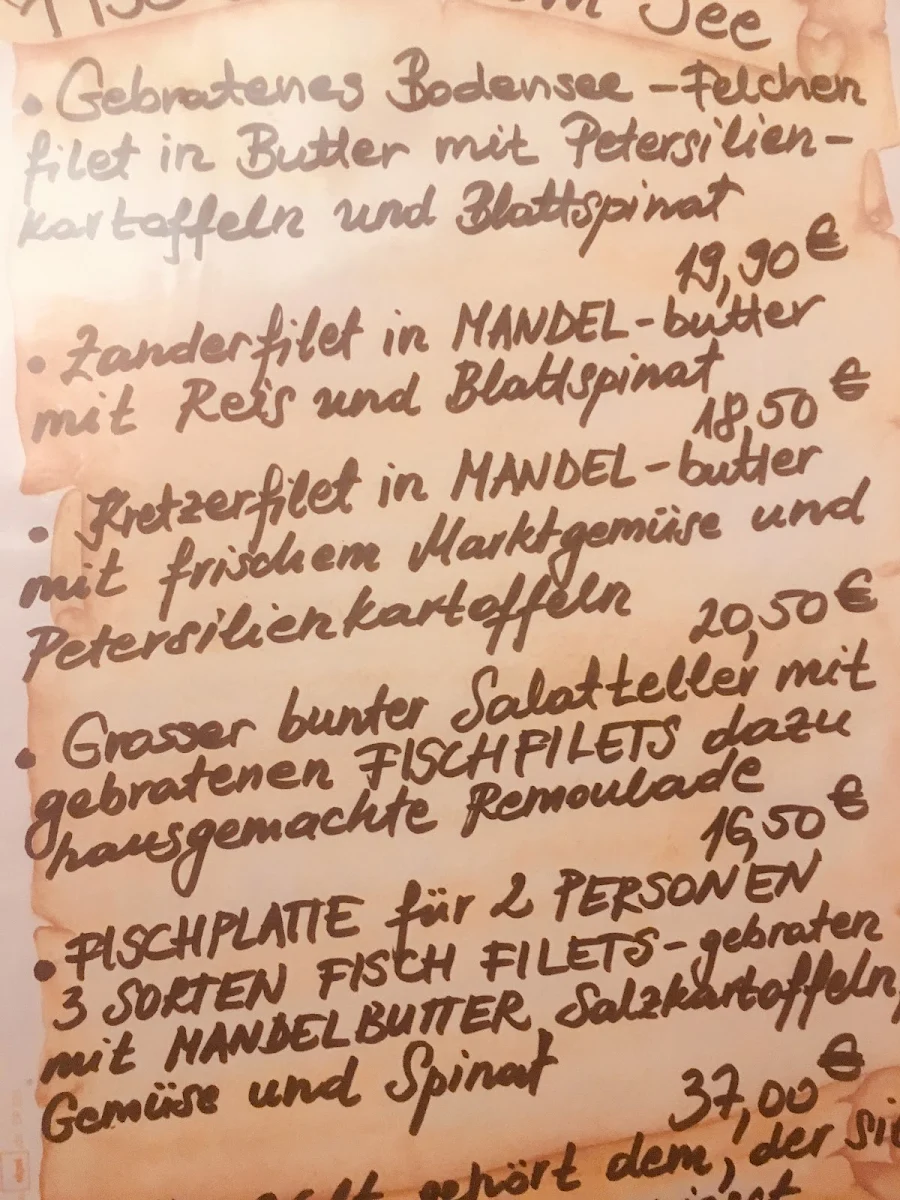 See
• Gebratenes Bodensee - Felchen
filet in Butter mit Petersilien-
kartoffeln und Blattspinat
19,90 €
• Zanderfilet in MANDEL-butter
mit Reis und Blattspinat
18,50 €
• Kretzerfilet in MANDEL-butter
mit frischem Marktgemüse und
Petersilienkartoffeln
20,50 €
• Grosser bunter Salatteller mit
gebratenen FISCHFILETS dazu
hausgemachte Remoulade
16,50 €
• FISCHPLATTE für 2 PERSONEN
3 SORTEN FISCH FILETS-gebraten
mit MANDELBUTTER, Salzkartoffeln,
Gemüse und Spinat
37,00 €
gehört dem, der